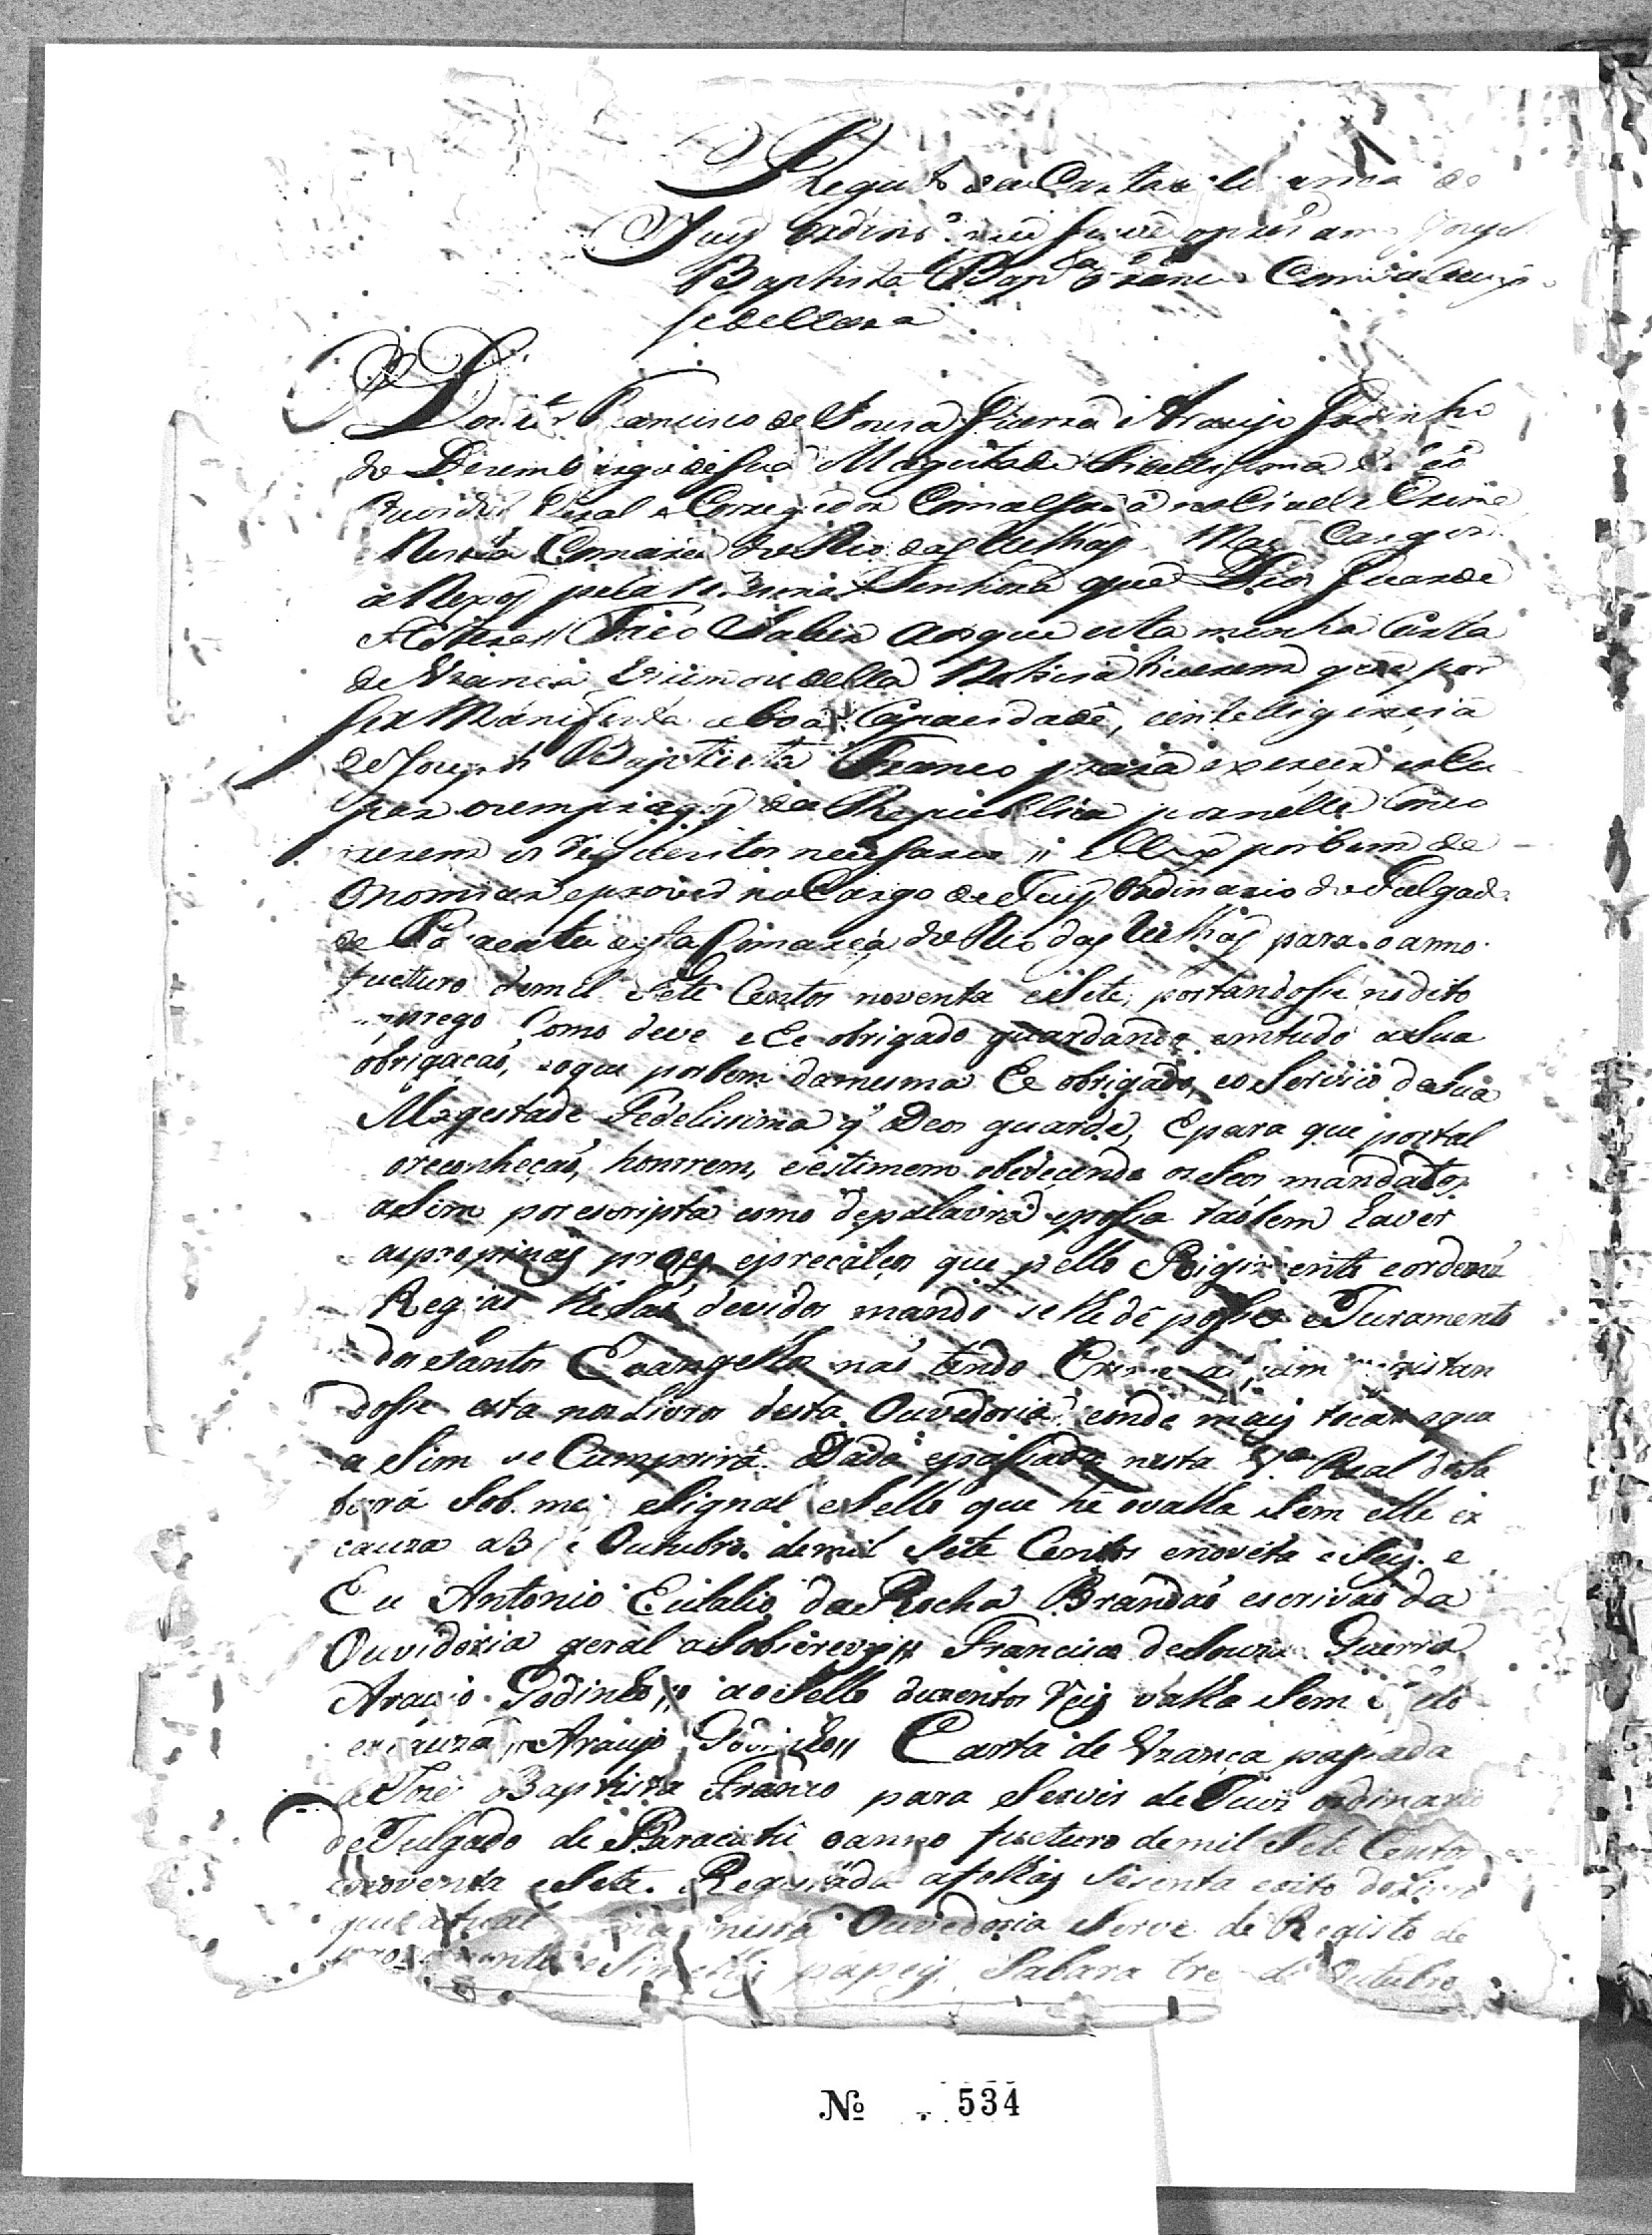 Registo da Carta de Uzança de
Juiz Ordinr.º
Baptista Franco Como abaixo
se decllara
Doutor Francisco de Souza Guerra e Araujo Godinho
do Dezembargo de Sua Magestade Fidellissima
Ouvidor Geral e Corregedor Com alsada no Civel e Crime
Nesta Comarca do Rio das Velhas
pela mesma Senhora que Deos Guarde
etcetera Faço Saber aos que esta minha Carta
de Uzança virem ou della Noticia tiverem que por
ser Manifesta a boa Capacidade, eintelligencia
de Joseph Baptista Franco para exercer eOcu
par os empregos da Republica por nelle Conco
rrerem os requezitos necessarios por bem de
onomiar e prover no Cargo de Juiz Ordinario do Julgado
de Paracatu desta Comarca do Rio das Velhas para o anno
fucturo demil Sete Centos noventa eSete, portandosse no dito
emprego Como deve e he obrigado guardando emtudo aSua
obrigacaõ, eoque por bem da mesma he obrigado, eo Servico deSua
Magestade Fedelissima q̃ Deos guarde, Epara que por tal
o reconheçaõ, honrrem, eestimem obedecendo os Seos mandatos
aSim por escripta como depalavra epossa taõbem haver
aspropinas proes eprecalços que pello Rigimento eordens
Regias lhe Saõ devidos mando se lhe dê posse eJuramento
dos Santos Evangelhos naõ tendo Crime registan
dosse esta nos Livros desta Ouvedoria eonde mais tocar oque
aSim se Cumprirá. Dada epassada nesta V.ª Real do Sa
bará Sob meu Signal eSello que hê ovalha Sem elle ex
cauza a 3 de Outubro de mil Sete Centos enoveta eSeis. e
Eu Antonio Eulalio da Rocha Brandaõ escrivaõ da
Ouvidoria geral aSobscrevy // Francisco deSouza Guerra
Araujo Godinho // ao Sello duzentos reis valha Sem Sello
ex cauza // Araujo Godinho // Carta de Uzança passada
a Joze Baptista Franco para Servir de Juiz ordinario
do Julgado de Paracatû o anno fucturo demil Sete Centos
enoventa eSete. Registada afolhas Sesenta eoito do Livro
que atual nesta Ouvedoria Serve de Registo de
eSimelhes papeis. Sabara tres de Outubro
Nº 534